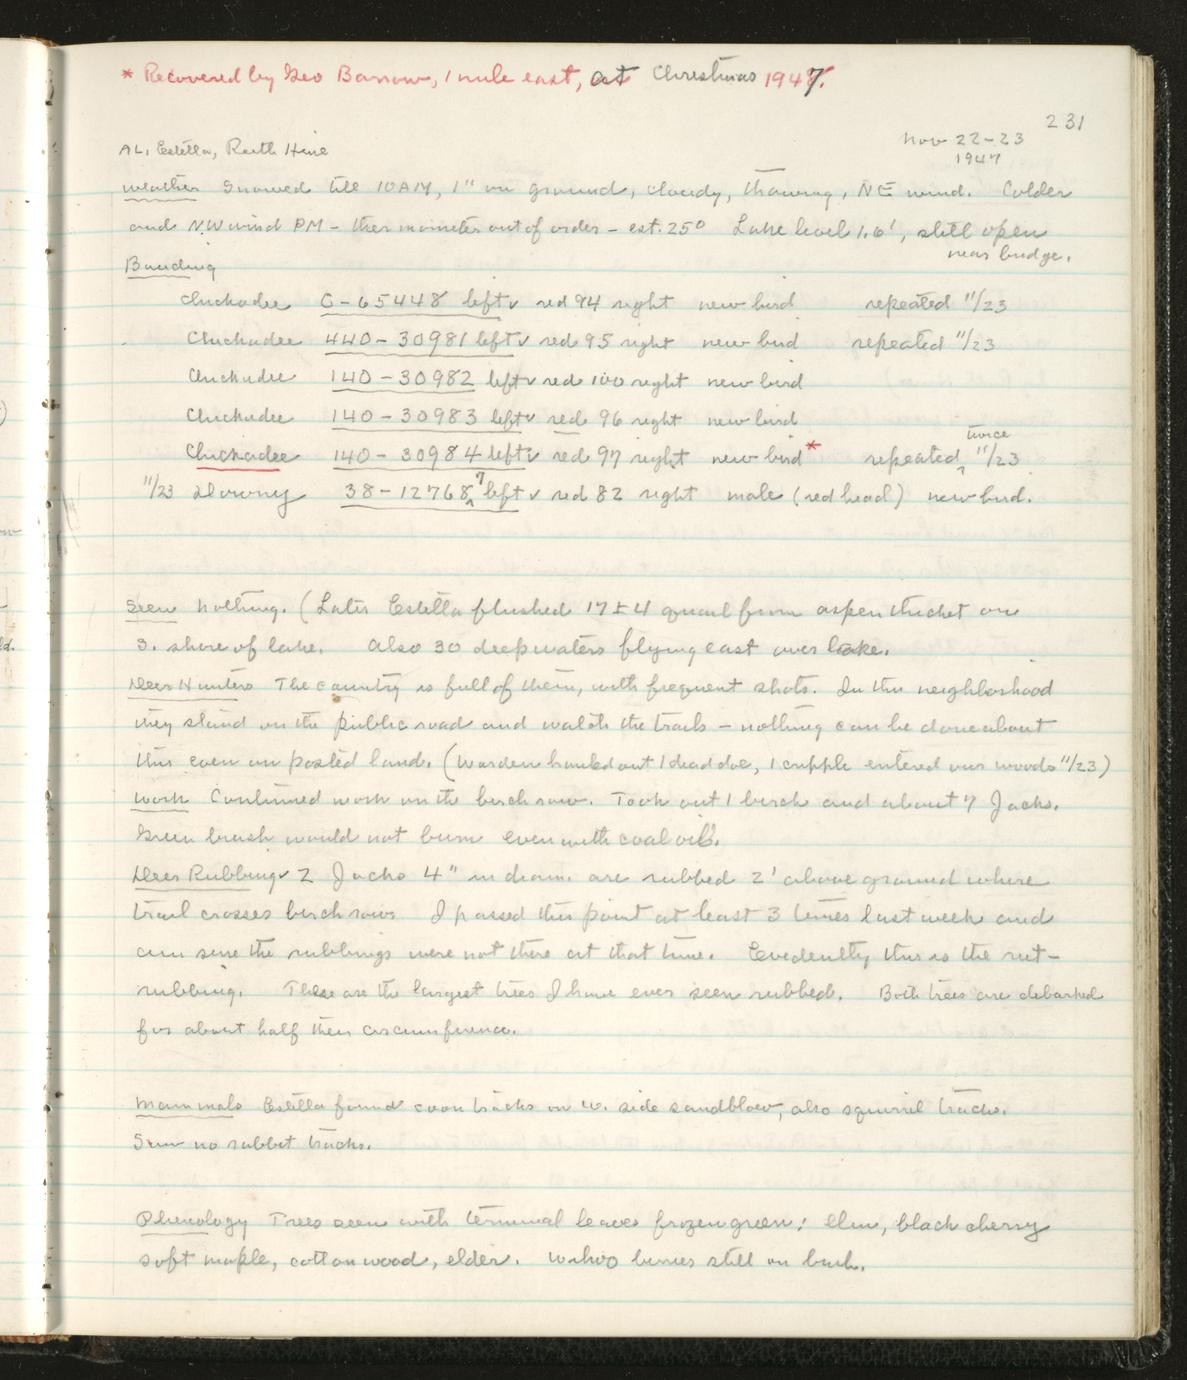 * Recovered by Geo Barrow, 1 mile east, at Christmas 1947.
231
Nov 22-23
1947
AL, Estella, Ruth Hine
Weather Snowed till 10AM, 1" on ground, cloudy, thawing, NE wind. Colder
and NW wind PM - thermometer out of order - est. 25° Lake level 1.6', still open
near bridge.
Banding
Chickadee C-65448 left v red 94 right new bird repeated 11/23
Chickadee 140-30981 left v red 95 right new bird repeated 11/23
Chickadee 140-30982 left v red 100 right new bird
Chickadee 140-30983 left v red 96 right new bird
twice
Chickadee 140-30984 left v red 97 right new bird* repeated ^ 11/23
11/23 Downy 38-127687 left v red 82 right male (red head) new bird.
Seen Nothing. (Later Estella flushed 17±4 quail from aspen thicket on
S. shore of lake. Also 30 deepwaters flying east over lake.
Deer Hunters The country is full of them, with frequent shots. In this neighborhood
they stand on the public road and watch the trails - nothing can be done about
this even on posted land. (Warden hauled out 1 dead doe, 1 cripple entered our woods 11/23)
Work Continued work on the birch row. Took out 1 birch and about 7 Jacks.
Green brush would not burn even with coal oil.
Deer Rubbings 2 Jacks 4" in diam. are rubbed 2' above ground where
trail crosses birch row. I passed this point at least 3 times last week and
am sure the rubbings were not there at that time. Evidently this is the rut-
rubbing. These are the largest trees I have ever seen rubbed. Both trees are debarked
for about half their circumference.
Mammals Estella found coon tracks on W. side sandblow, also squirrel tracks.
Saw no rabbit tracks.
Phenology Trees seen with terminal leaves frozen green: elm, black cherry
soft maple, cottonwood, elder. Wahoo berries still on bush.